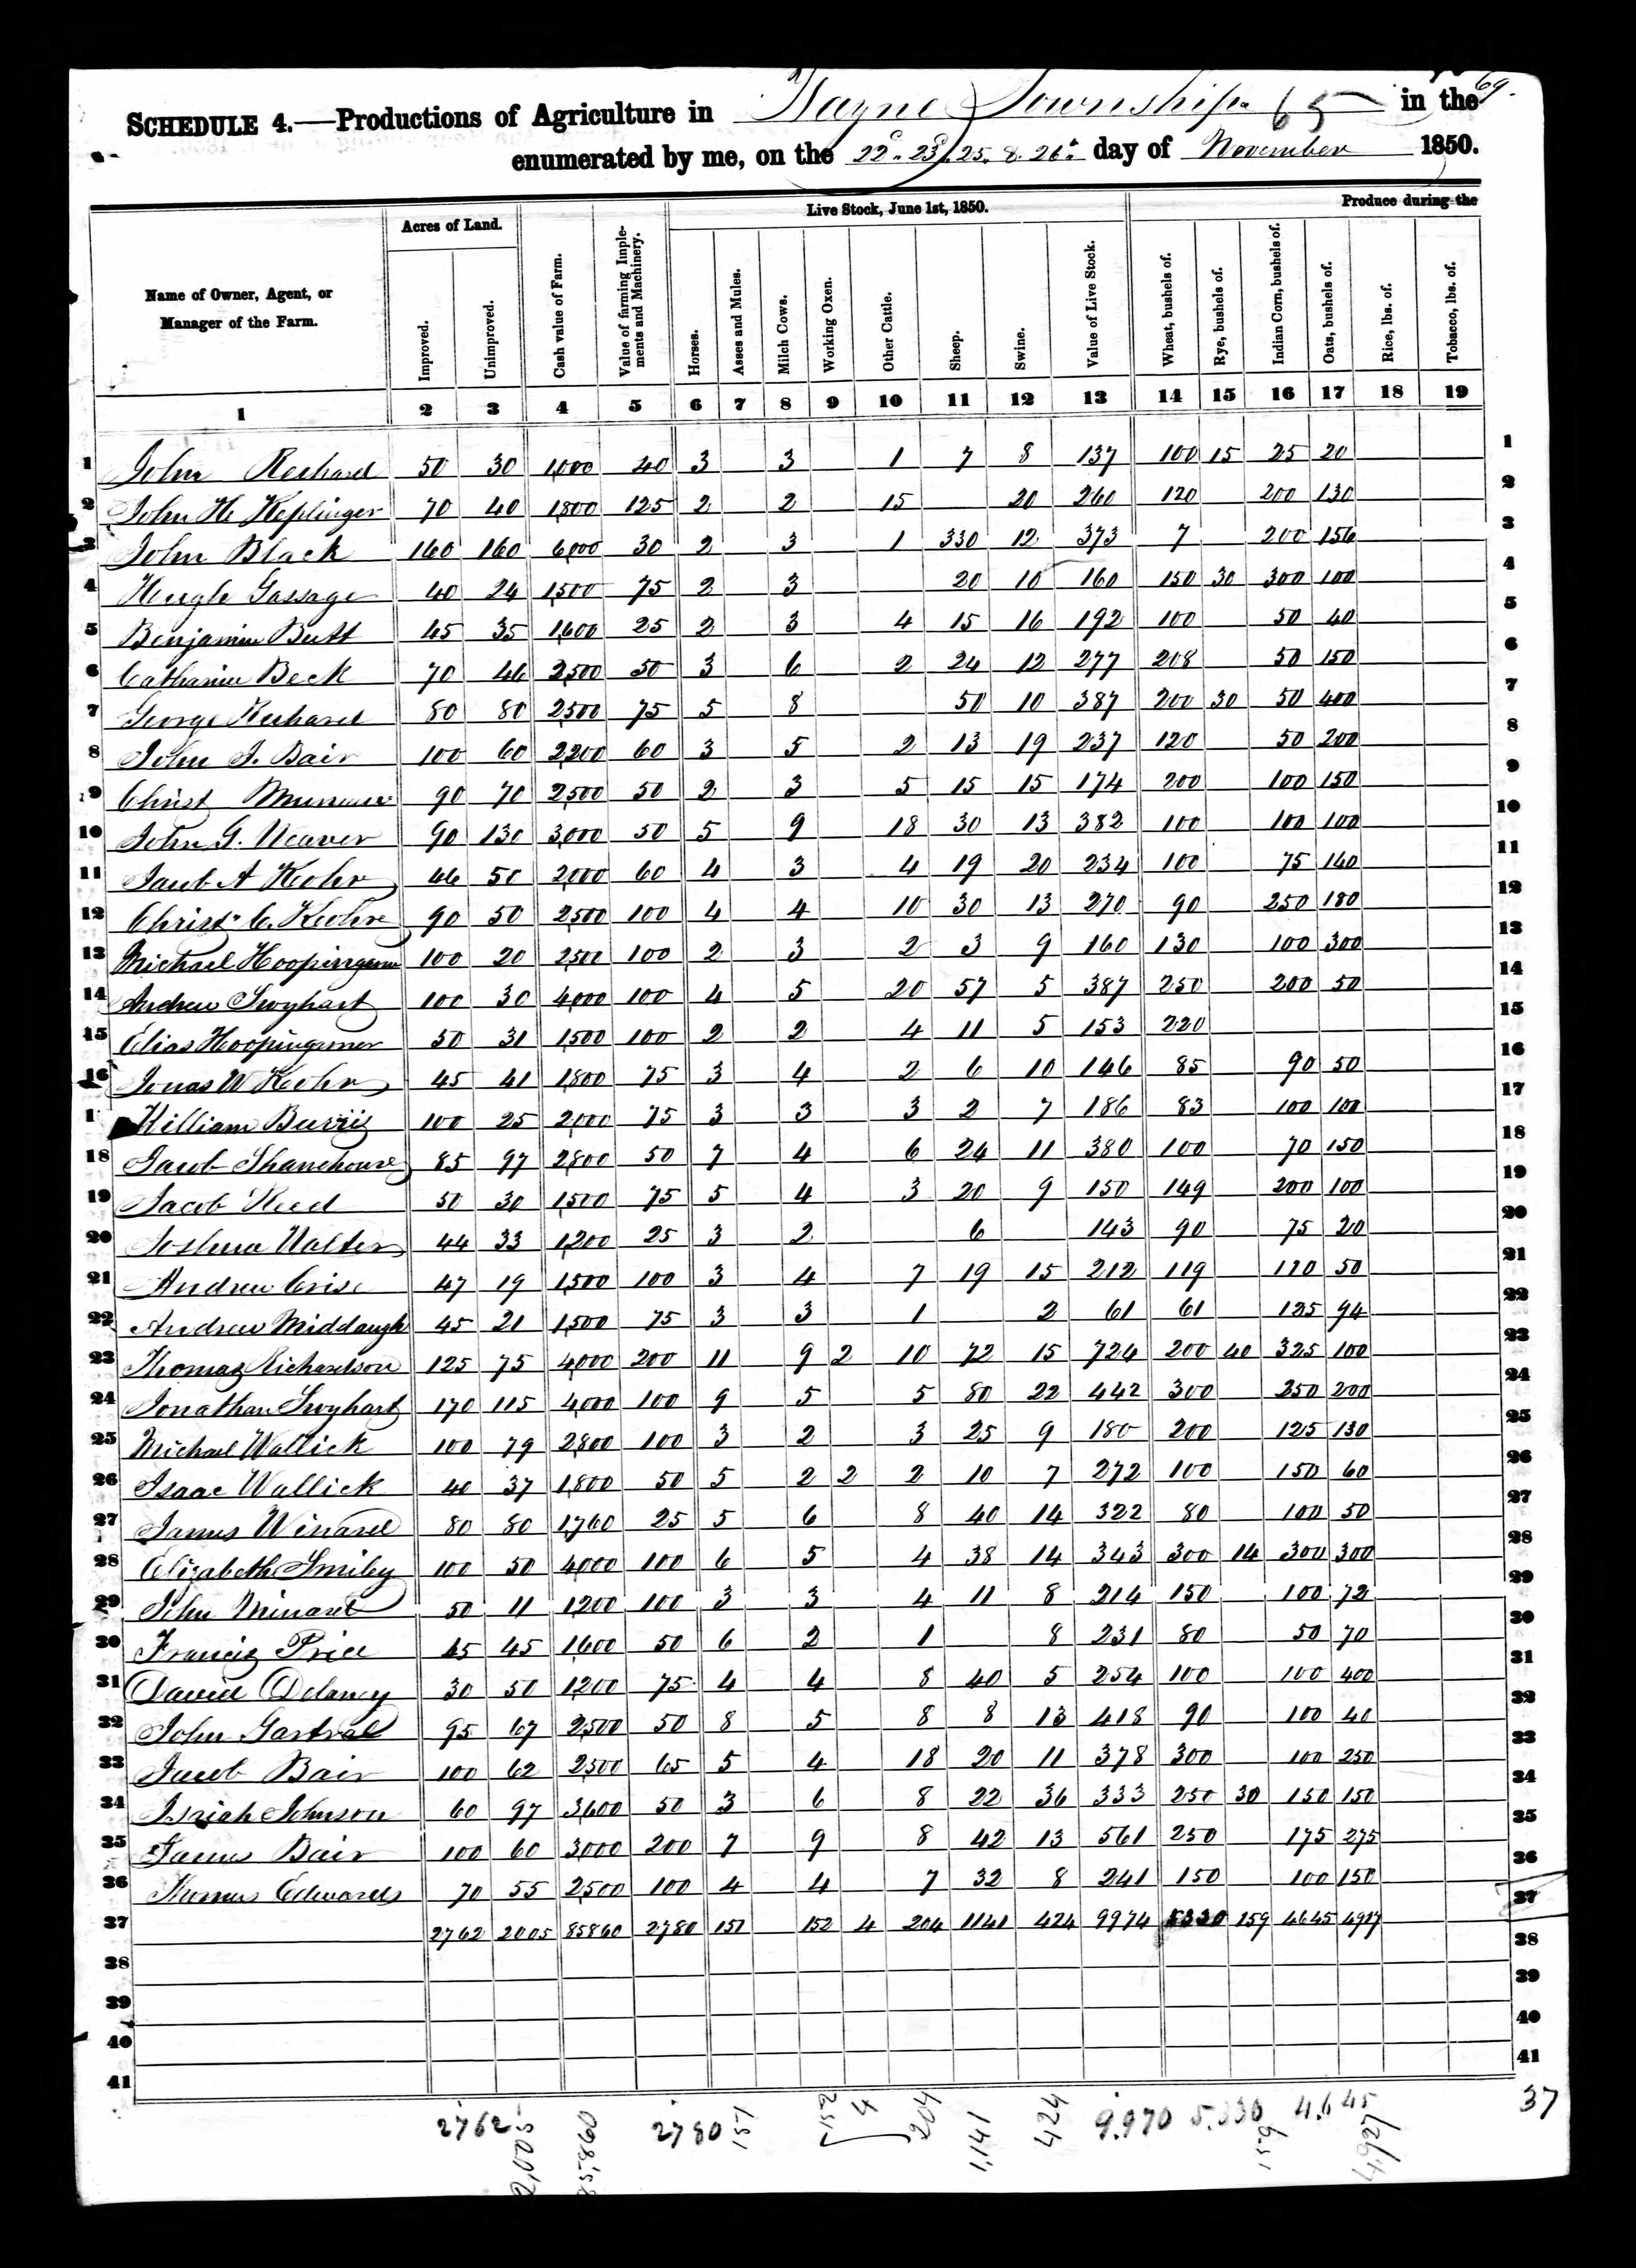 69.
SCHEDULE 4.—Productions of Agriculture in Wayne Township 65 in the
enumerated by me, on the 22d. 23d, 25. & 26th day of November 1850.
Name of Owner, Agent, or Manager of the Farm. Acres of Land. Cash value of Farm. Value of farming Implements and Machinery. Live Stock, June 1st, 1850. Produce during the
Improved. Unimproved. Horses. Asses and Mules. Milch Cows. Working Oxen. Other Cattle. Sheep. Swine. Value of Live Stock. Wheat, bushels of. Rye, bushels of. Indian Corn, bushels of. Oats, bushels of. Rice, lbs. of. Tobacco, lbs. of.
1 2 3 4 5 6 7 8 9 10 11 12 13 14 15 16 17 18 19
1 John 50 30 1,000 40 3 3 1 7 8 137 100 15 25 20 1
2 John H Keplinger 70 40 1,800 125 2 2 15 20 260 120 200 130 2
3 John Black 160 160 6,000 30 2 3 1 330 12 373 7 200 156 3
4 Gassage 40 24 1,500 75 2 3 20 10 160 150 30 300 100 4
5 Benjamin Butt 45 35 1,600 25 2 3 4 15 16 192 100 50 40 5
6 Catharine Beck 70 46 2,500 50 3 6 2 24 12 277 208 50 150 6
7 George 80 80 2,500 75 5 8 50 10 387 200 30 50 400 7
8 John J. Bair 100 60 2,200 60 3 5 2 13 19 237 120 50 200 8
9 Christ 90 70 2,500 50 2 3 5 15 15 174 200 100 150 9
10 John G. Weaver 90 130 3,000 50 5 9 18 30 13 382 100 100 100 10
11 Jacob A Kohr 46 50 2,000 60 4 3 4 19 20 234 100 75 140 11
12 Christ. C. 90 50 2,500 100 4 4 10 30 13 270 90 250 180 12
13 Michael Hoopingarner 100 20 2,500 100 2 3 2 3 9 160 130 100 300 13
14 Andrew Swyhart 100 30 4,000 100 4 5 20 57 5 387 250 200 50 14
15 Elias Hoopingarner 50 31 1,500 100 2 2 4 11 5 153 220 15
16 Jonas W Kohr 45 41 1,800 75 3 4 2 6 10 146 85 90 50 16
1 William Burris 100 25 2,000 75 3 3 3 2 7 186 83 100 100 17
18 Jacob Shanehouse 85 97 2,800 50 7 4 6 24 11 380 100 70 150 18
19 Jacob Reed 50 30 1,500 75 5 4 3 20 9 150 149 200 100 19
20 Joshua Walter 44 33 1,200 25 3 2 6 143 90 75 20 20
21 Andrew Crise 47 19 1,500 100 3 4 7 19 15 212 119 120 50 21
22 Andrew Middaugh 45 21 1,500 75 3 3 1 2 61 61 125 94 22
23 Thomas Richardson 125 75 4,000 200 11 9 2 10 72 15 724 200 40 325 100 23
24 Jonathan Swyhart 170 115 4,000 100 9 5 5 80 22 442 300 250 200 24
25 Michael Wallick 100 79 2,800 100 3 2 3 25 9 180 200 125 130 25
26 Isaac Wallick 40 37 1,800 50 5 2 2 2 10 7 272 100 150 60 26
27 James Winard 80 80 1,760 25 5 6 8 40 14 322 80 100 50 27
28 Elizabeth Smiley 100 50 4,000 100 6 5 4 38 14 343 300 14 300 300 28
29 John Minard 50 11 1,200 100 3 3 4 11 8 214 150 100 72 29
30 Francis Price 45 1,600 50 6 2 1 8 231 80 50 70 30
31 David Delancy 30 50 1,200 75 4 4 8 40 5 254 100 100 400 31
32 John Gartral 95 67 2,500 50 8 5 8 8 13 418 90 100 40 32
33 Jacob Bair 100 62 2,500 65 5 4 18 20 11 378 300 100 250 33
34 Isaiah Johnson 60 97 3,600 50 3 6 8 22 36 333 250 30 150 150 34
35 James Bair 100 60 3,000 200 7 9 8 42 13 561 250 175 275 35
36 Thomas Edwards 70 55 2,500 100 4 4 7 32 8 241 150 100 150 36
37 2762 2005 85860 2780 157 152 4 204 1141 424 9974 5330 159 4645 4917 37
38 38
39 39
40 40
41 41
2762 2,005 85,860 2780 157 152 4 204 1,141 424 9.970 5.330 159 4.645 4,927 37